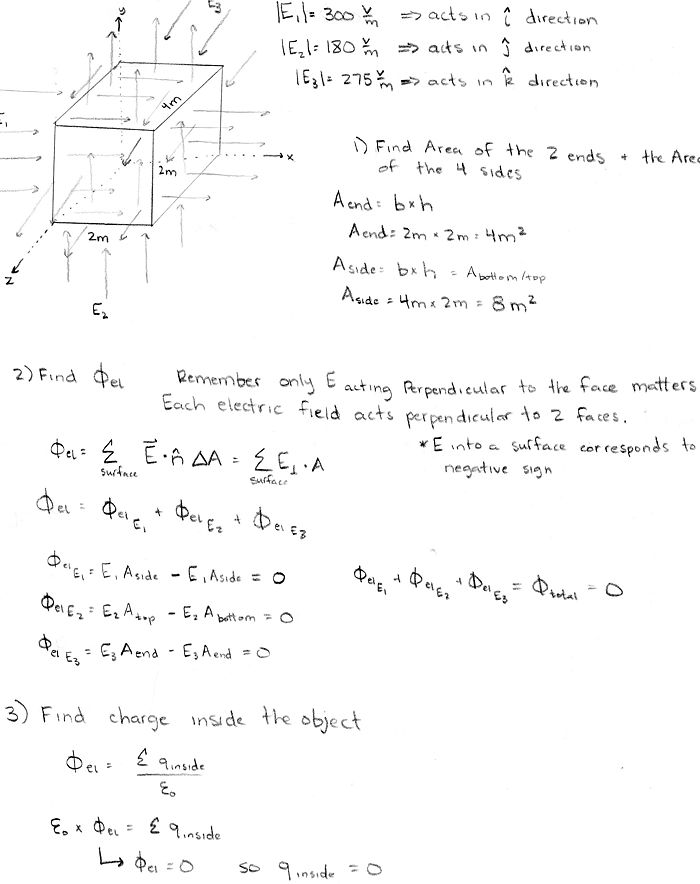 y
E3
|E1| = 300 V/m ⇒ acts in î direction
|E2| = 180 V/m ⇒ acts in ĵ direction
|E3| = 275 V/m ⇒ acts in k̂ direction
4m
E1
x
2m
2m
z
E2
1) Find Area of the 2 ends + the Area
of the 4 sides
Aend = b×h
Aend = 2m × 2m = 4m²
Aside = b×h = Abottom/top
Aside = 4m × 2m = 8m²
2) Find Φel Remember only E acting Perpendicular to the face matters
Each electric field acts perpendicular to 2 faces.
Φel = Σsurface E⃗·n̂ ΔA = Σsurface E⊥·A
*E into a surface corresponds to
negative sign
Φel = Φel E1 + Φel E2 + Φel E3
Φel E1 = E1 Aside - E1 Aside = 0
Φel E1 + Φel E2 + Φel E3 = Φtotal = 0
Φel E2 = E2 Atop - E2 Abottom = 0
Φel E3 = E3 Aend - E3 Aend = 0
3) Find charge inside the object
Φel = Σ qinside / ε0
ε0 × Φel = Σ qinside
↳ Φel = 0 so qinside = 0